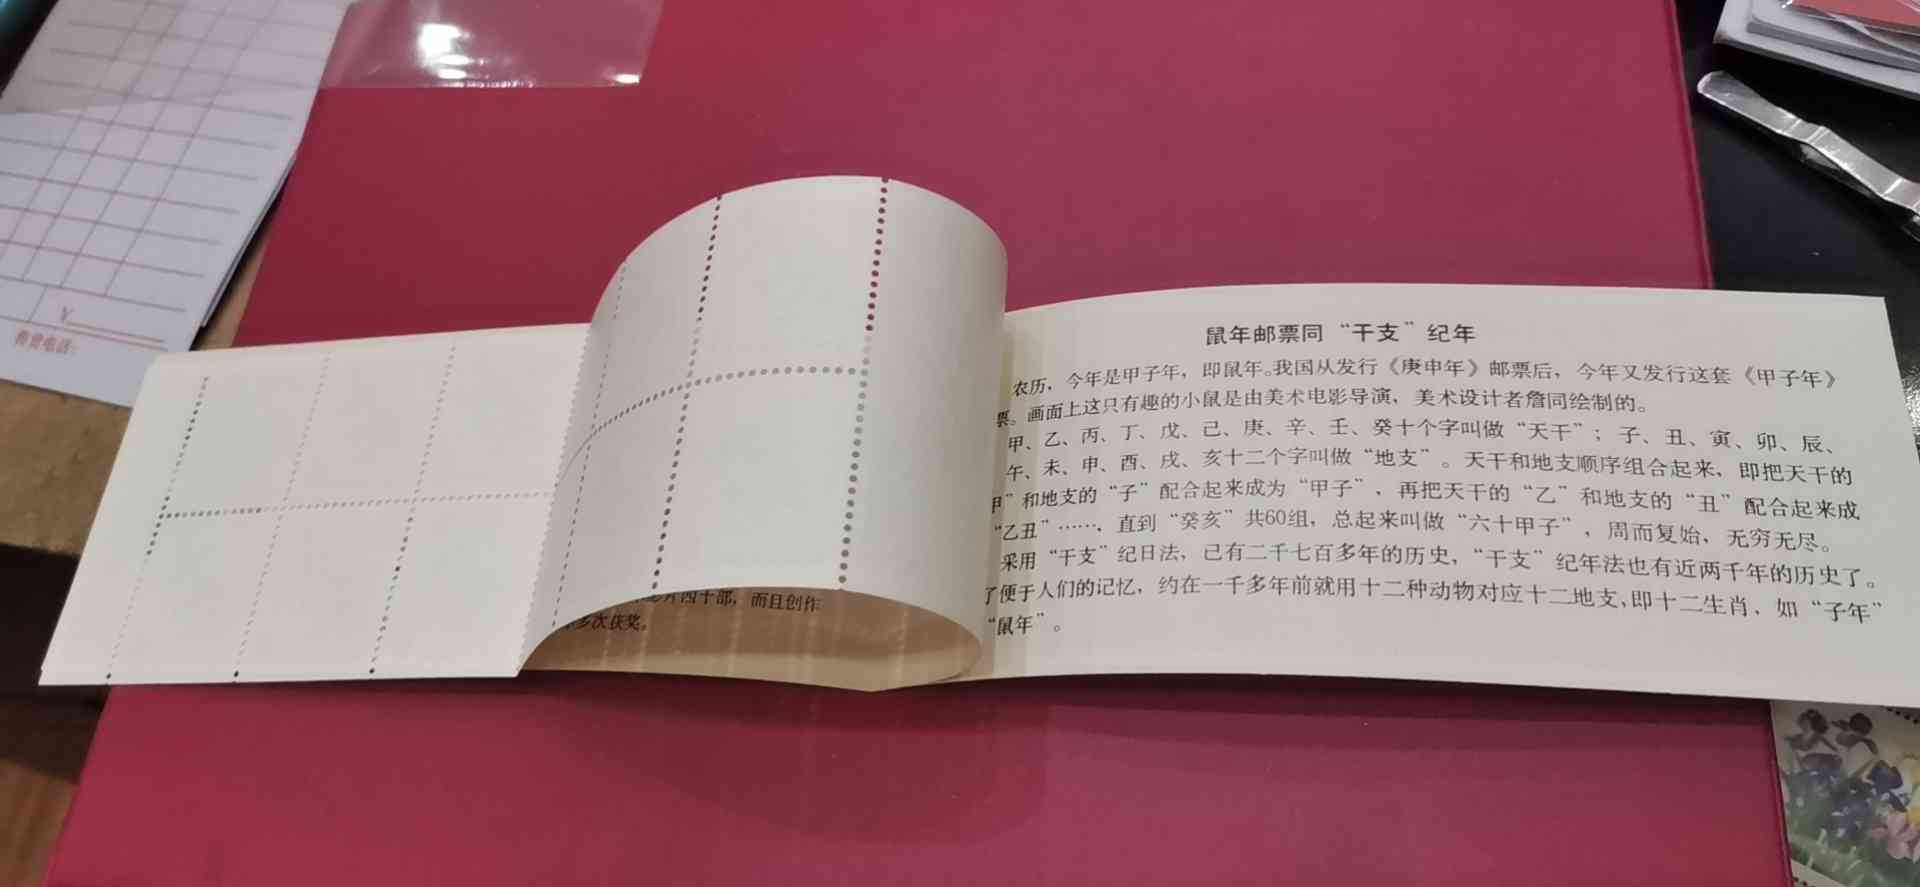 ¥
售货电话:
鼠年邮票同“干支”纪年
农历，今年是甲子年，即鼠年。我国从发行《庚申年》邮票后，今年又发行这套《甲子年》
票。画面上这只有趣的小鼠是由美术电影导演，美术设计者詹同绘制的。
甲、乙、丙、丁、戊、己、庚、辛、壬、癸十个字叫做“天干”；子、丑、寅、卯、辰、
午、未、申、酉、戌、亥十二个字叫做“地支”。天干和地支顺序组合起来，即把天干的
甲”和地支的“子”配合起来成为“甲子”，再把天干的“乙”和地支的“丑”配合起来成
“乙丑”……，直到“癸亥”共60组，总起来叫做“六十甲子”，周而复始，无穷无尽。
采用“干支”纪日法，已有二千七百多年的历史，“干支”纪年法也有近两千年的历史了。
了便于人们的记忆，约在一千多年前就用十二种动物对应十二地支，即十二生肖，如“子年”
“鼠年”。
四十部，而且创作
多次获奖。